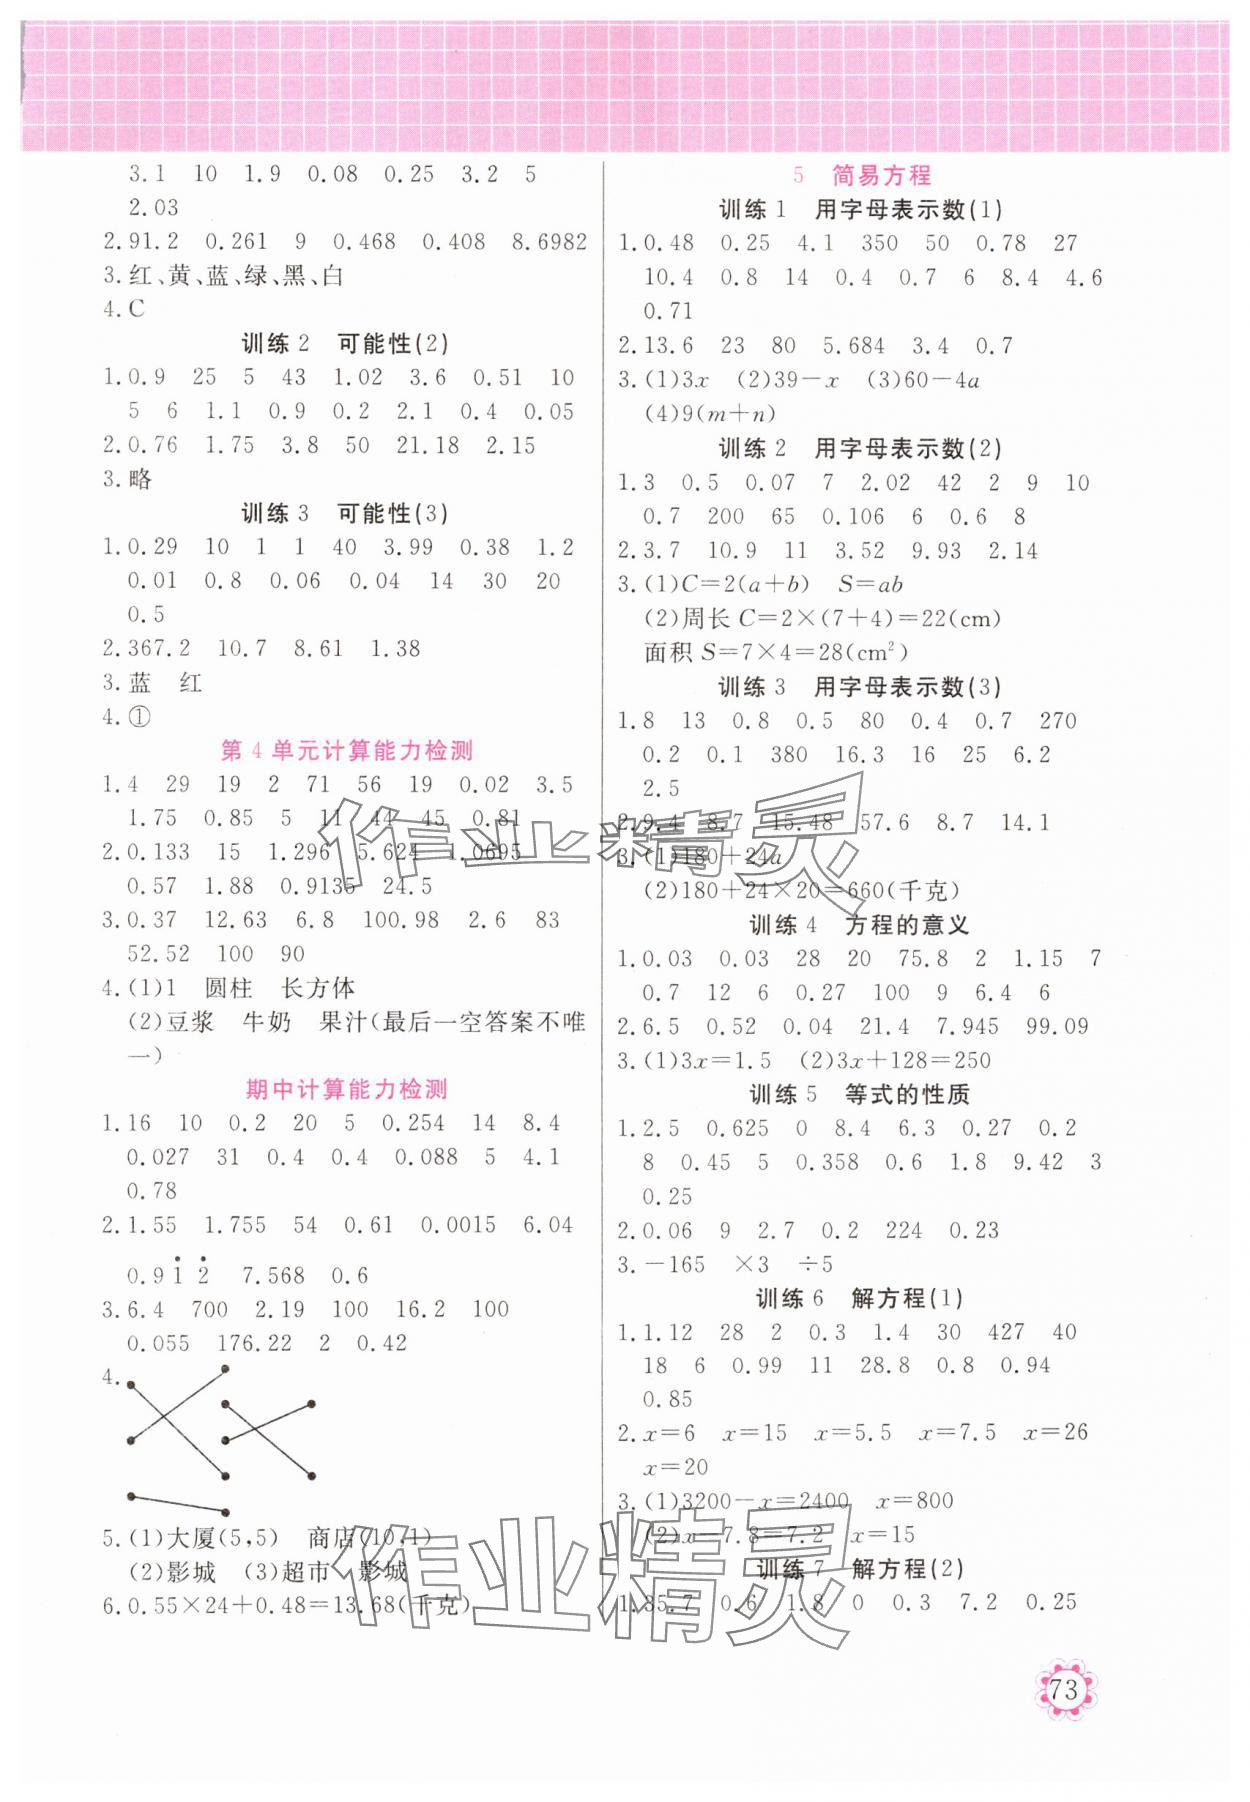 3.1 10 1.9 0.08 0.25 3.2 5
2.03
2.91.2 0.261 9 0.468 0.408 8.6982
3.红、黄、蓝、绿、黑、白
4.C
训练2 可能性(2)
1.0.9 25 5 43 1.02 3.6 0.51 10
5 6 1.1 0.9 0.2 2.1 0.4 0.05
2.0.76 1.75 3.8 50 21.18 2.15
3.略
训练3 可能性(3)
1.0.29 10 1 1 40 3.99 0.38 1.2
0.01 0.8 0.06 0.04 14 30 20
0.5
2.367.2 10.7 8.61 1.38
3.蓝 红
4.①
第4单元计算能力检测
1.4 29 19 2 71 56 19 0.02 3.5
1.75 0.85 5 11 44 45 0.81
2.0.133 15 1.296 5.624 1.0695
0.57 1.88 0.9135 24.5
3.0.37 12.63 6.8 100.98 2.6 83
52.52 100 90
4.(1)1 圆柱 长方体
(2)豆浆 牛奶 果汁(最后一空答案不唯
一)
期中计算能力检测
1.16 10 0.2 20 5 0.254 14 8.4
0.027 31 0.4 0.4 0.088 5 4.1
0.78
2.1.55 1.755 54 0.61 0.0015 6.04
0.91̇2̇ 7.568 0.6
3.6.4 700 2.19 100 16.2 100
0.055 176.22 2 0.42
4.
5.(1)大厦(5,5) 商店(10,1)
(2)影城 (3)超市 影城
6.0.55×24+0.48=13.68(千克)
5 简易方程
训练1 用字母表示数(1)
1.0.48 0.25 4.1 350 50 0.78 27
10.4 0.8 14 0.4 0.7 6 8.4 4.6
0.71
2.13.6 23 80 5.684 3.4 0.7
3.(1)3x (2)39-x (3)60-4a
(4)9(m+n)
训练2 用字母表示数(2)
1.3 0.5 0.07 7 2.02 42 2 9 10
0.7 200 65 0.106 6 0.6 8
2.3.7 10.9 11 3.52 9.93 2.14
3.(1)C=2(a+b) S=ab
(2)周长C=2×(7+4)=22(cm)
面积S=7×4=28(cm²)
训练3 用字母表示数(3)
1.8 13 0.8 0.5 80 0.4 0.7 270
0.2 0.1 380 16.3 16 25 6.2
2.5
2.9.4 8.7 15.48 57.6 8.7 14.1
3.(1)180+24a
(2)180+24×20=660(千克)
训练4 方程的意义
1.0.03 0.03 28 20 75.8 2 1.15 7
0.7 12 6 0.27 100 9 6.4 6
2.6.5 0.52 0.04 21.4 7.945 99.09
3.(1)3x=1.5 (2)3x+128=250
训练5 等式的性质
1.2.5 0.625 0 8.4 6.3 0.27 0.2
8 0.45 5 0.358 0.6 1.8 9.42 3
0.25
2.0.06 9 2.7 0.2 224 0.23
3.-165 ×3 ÷5
训练6 解方程(1)
1.1.12 28 2 0.3 1.4 30 427 40
18 6 0.99 11 28.8 0.8 0.94
0.85
2.x=6 x=15 x=5.5 x=7.5 x=26
x=20
3.(1)3200-x=2400 x=800
(2)x-7.8=7.2 x=15
训练7 解方程(2)
1.35.7 0.6 1.8 0 0.3 7.2 0.25
73
作业精灵
作业精灵